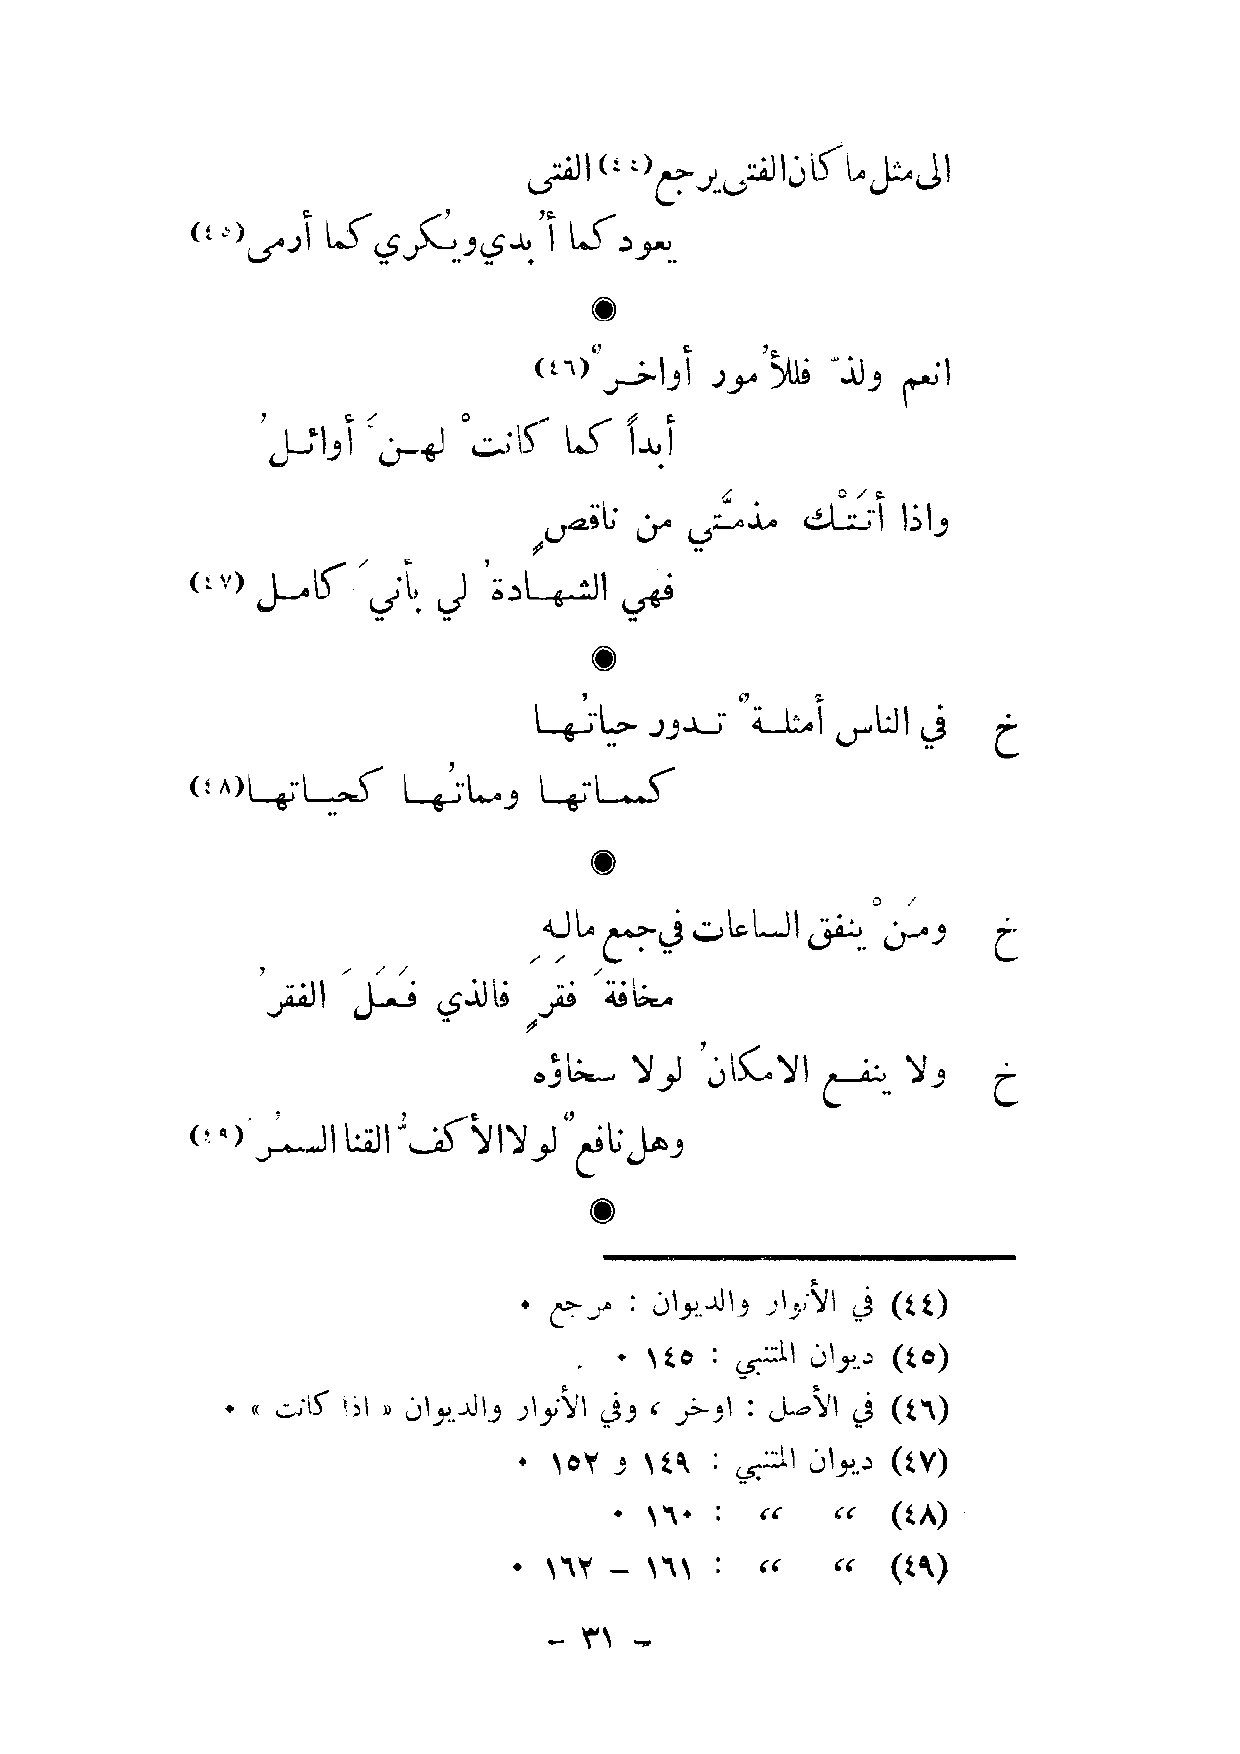 الى مثل ما كان الفتى يرجع(٤٤) الفتى
يعود كما أُبدي ويُكري كما أرمى(٤٥)
◉
انعم ولذّ فللأُمور أواخرٌ(٤٦)
أبداً كما كانتْ لهنَّ أوائلُ
واذا أتَتْك مذمَّتي من ناقصٍ
فهي الشهادةُ لي بأنيَ كامل (٤٧)
◉
خ في الناس أمثلةٌ تدور حياتُها
كمماتها ومماتُها كحياتها(٤٨)
◉
خ ومَنْ ينفق الساعات في جمع مالِهِ
مخافةَ فقرٍ فالذي فَعَلَ الفقرُ
خ ولا ينفع الامكانُ لولا سخاؤه
وهل نافعٌ لولا الأكفُّ القنا السمُر (٤٩)
◉
(٤٤) في الأنوار والديوان : مرجع ٠
(٤٥) ديوان المتنبي : ١٤٥ ٠
(٤٦) في الأصل : اوخر ، وفي الأنوار والديوان « اذا كانت » ٠
(٤٧) ديوان المتنبي : ١٤٩ و ١٥٢ ٠
(٤٨) “ “ : ١٦٠ ٠
(٤٩) “ “ : ١٦١ – ١٦٢ ٠
- ٣١ -